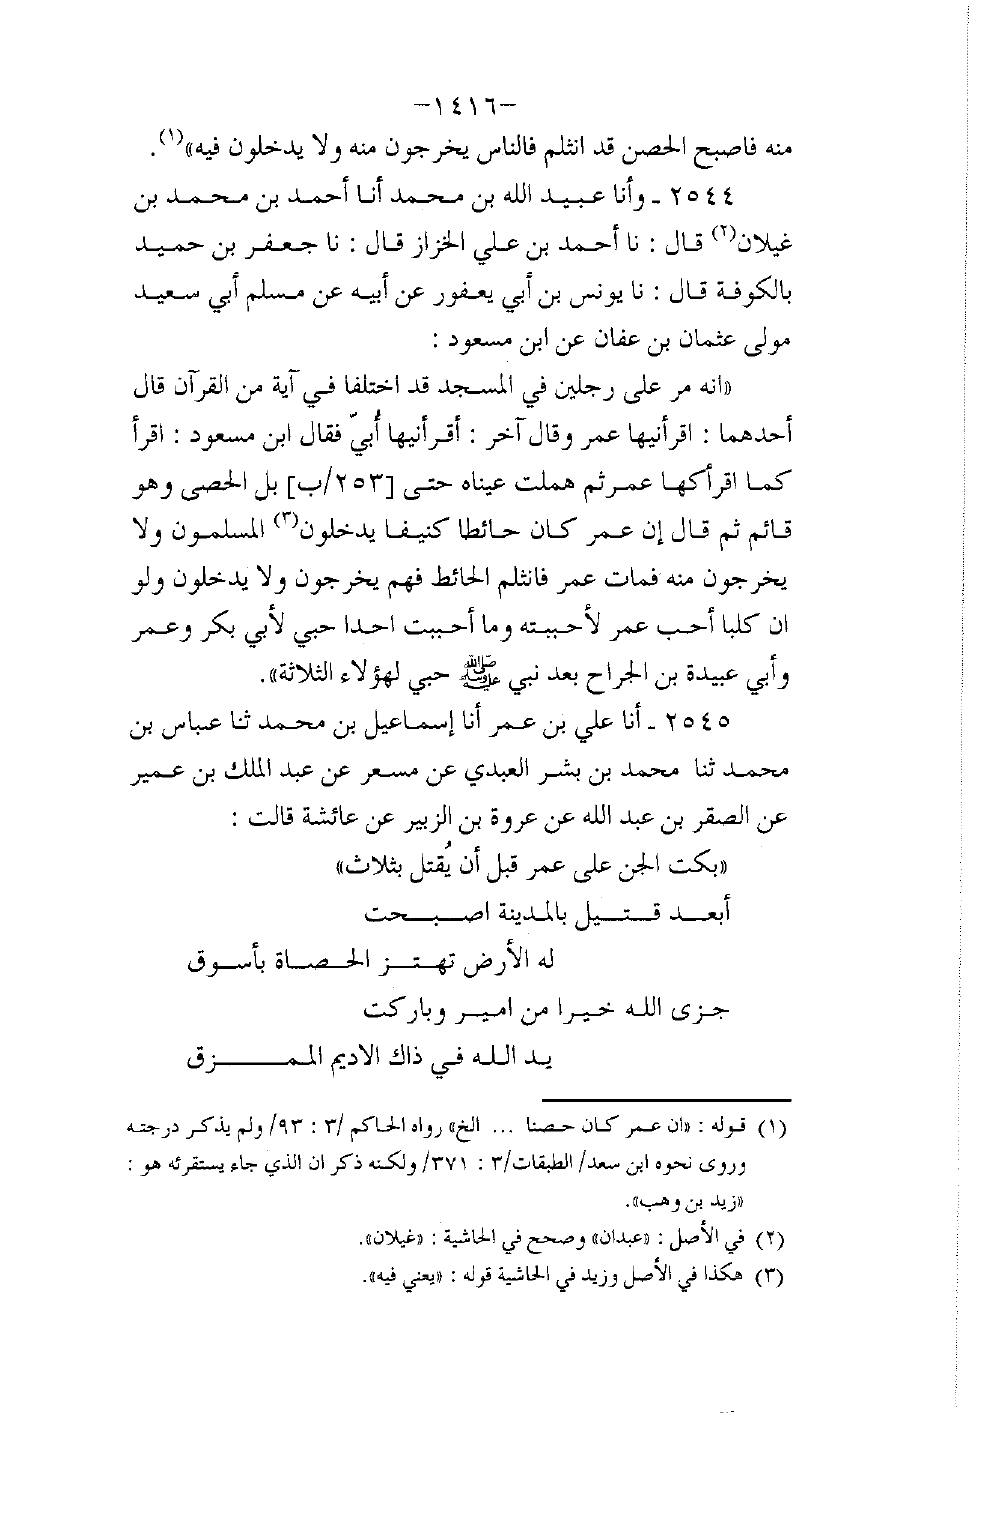 -١٤١٦-
منه فاصبح الحصن قد انثلم فالناس يخرجون منه ولا يدخلون فيه»(١).
٢٥٤٤ ـ وأنا عبيد الله بن محمد أنا أحمد بن محمد بن
غيلان(٢) قال : نا أحمد بن علي الخزاز قال : نا جعفر بن حميد
بالكوفة قال : نا يونس بن أبي يعفور عن أبيه عن مسلم أبي سعيد
مولى عثمان بن عفان عن ابن مسعود :
«انه مر على رجلين في المسجد قد اختلفا في آية من القرآن قال
أحدهما : اقرأنيها عمر وقال آخر : أقرأنيها أُبيّ فقال ابن مسعود : اقرأ
كما اقرأكها عمر ثم هملت عيناه حتى [٢٥٣/ب] بل الحصى وهو
قائم ثم قال إن عمر كان حائطا كنيفا يدخلون(٣) المسلمون ولا
يخرجون منه فمات عمر فانثلم الحائط فهم يخرجون ولا يدخلون ولو
ان كلبا أحب عمر لأحببته وما أحببت احدا حبي لأبي بكر وعمر
وأبي عبيدة بن الجراح بعد نبي ﷺ حبي لهؤلاء الثلاثة».
٢٥٤٥ ـ أنا علي بن عمر أنا إسماعيل بن محمد ثنا عباس بن
محمد ثنا محمد بن بشر العبدي عن مسعر عن عبد الملك بن عمير
عن الصقر بن عبد الله عن عروة بن الزبير عن عائشة قالت :
«بكت الجن على عمر قبل أن يُقتل بثلاث»
أبعد قتيل بالمدينة اصبحت
له الأرض تهتز الحصاة بأسوق
جزى الله خيرا من امير وباركت
يد الله في ذاك الاديم الممزق
(١) قوله : «ان عمر كان حصنا ... الخ» رواه الحاكم /٣ : ٩٣/ ولم يذكر درجته
وروى نحوه ابن سعد/ الطبقات/٣ : ٣٧١/ ولكنه ذكر ان الذي جاء يستقرئه هو :
«زيد بن وهب».
(٢) في الأصل : «عبدان» وصحح في الحاشية : «غيلان».
(٣) هكذا في الأصل وزيد في الحاشية قوله : «يعني فيه».